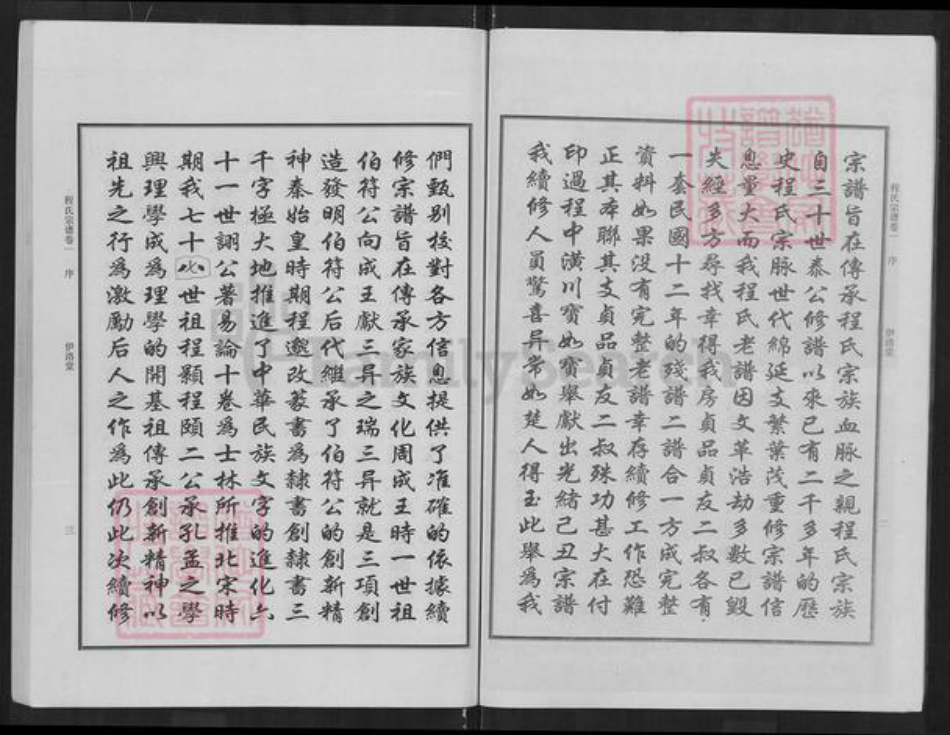 程氏宗谱卷一 序 伊洛堂 二
宗譜旨在傳承程氏宗族血脉之親程氏宗族
自三十世泰公修譜以來已有二千多年的歷
史程氏宗脉世代綿延支繁葉茂重修宗譜信
息量大而我程氏老譜因文革浩劫多數已毀
夫經多方尋找幸得我房貞品貞友二叔各有
一套民國十二年的殘譜二譜合一方成完整
資料如果没有完整老譜幸存續修工作恐難
正其本聯其支貞品貞友二叔殊功甚大在付
印過程中潢川寳如寳舉獻出光緒己丑宗譜
我續修人員驚喜异常如楚人得玉此舉為我
們甄别校對各方信息提供了准確的依據續
修宗譜旨在傳承家族文化周成王時一世祖
伯符公向成王獻三异之瑞三异就是三項創
造發明伯符公后代繼承了伯符公的創新精
神秦始皇時期程邈改篆書為隸書創隸書三
千字極大地推進了中華民族文字的進化六
十一世詡公著易論十卷為士林所推北宋時
期我七十八世祖程顥程頤二公承孔孟之學
興理學成為理學的開基祖傳承創新精神以
祖先之行為激勵后人之作為此仍此次續修
程氏宗谱卷一 序 伊洛堂 三
FamilySearch